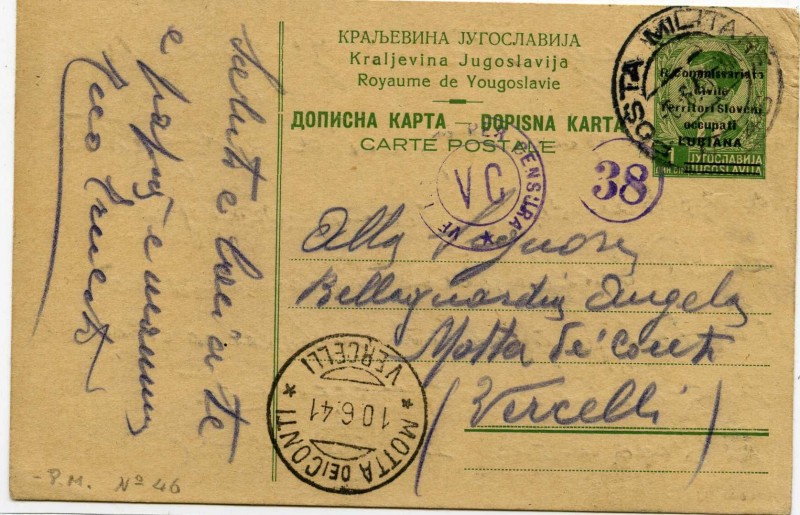 КРАЉЕВИНА ЈУГОСЛАВИЈА
Kraljevina Jugoslavija
Royaume de Yougoslavie
ДОПИСНА КАРТА — DOPISNA KARTA
CARTE POSTALE
POSTA MILITARE
R. Commissariato
Civile
Territori Sloveni
occupati
LUBIANA
1 ЈУГОСЛАВИЈА
JUGOSLAVIJA
PER CENSURA
VC
38
Alla Signora
Angela
Motta de' Conti
(Vercelli)
VERCELLI
10.6.41
* MOTTA DEI CONTI *
Saluti e baci a te
e papà e mamma
- P.M. Nº 46